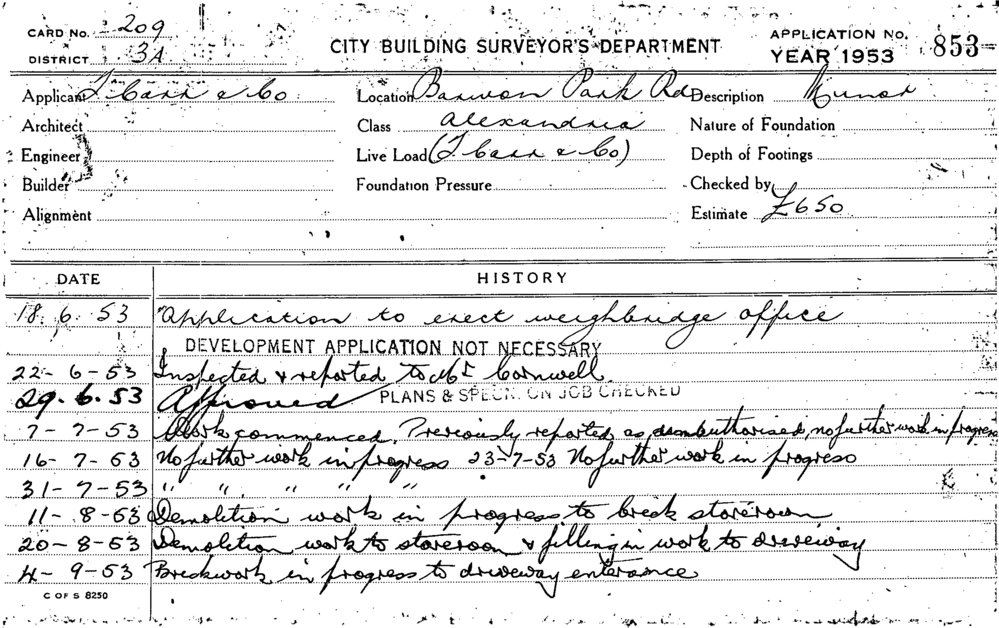 CARD No. 209
DISTRICT 3A
CITY BUILDING SURVEYOR'S DEPARTMENT
APPLICATION No. 853
YEAR 1953
Applicant T Carr & Co
Location Barwon Park Rd
Description Minor
Architect
Class Alexandria
Nature of Foundation
Engineer
Live Load (T Carr & Co)
Depth of Footings
Builder
Foundation Pressure
Checked by
Alignment
Estimate £650
DATE HISTORY
18.6.53 Application to erect weighbridge office
DEVELOPMENT APPLICATION NOT NECESSARY
22-6-53 Inspected & reported to Mr Cornwell
29.6.53 Approved PLANS & SPECN. ON JOB CHECKED
7-7-53 Work commenced. Previously reported as unauthorised, no further work in progress
16-7-53 No further work in progress 23-7-53 No further work in progress
31-7-53 " " " " "
11-8-53 Demolition work in progress to brick storeroom
20-8-53 Demolition work to storeroom & filling in work to driveway
4-9-53 Brickwork in progress to driveway enterance
C OF S 8250